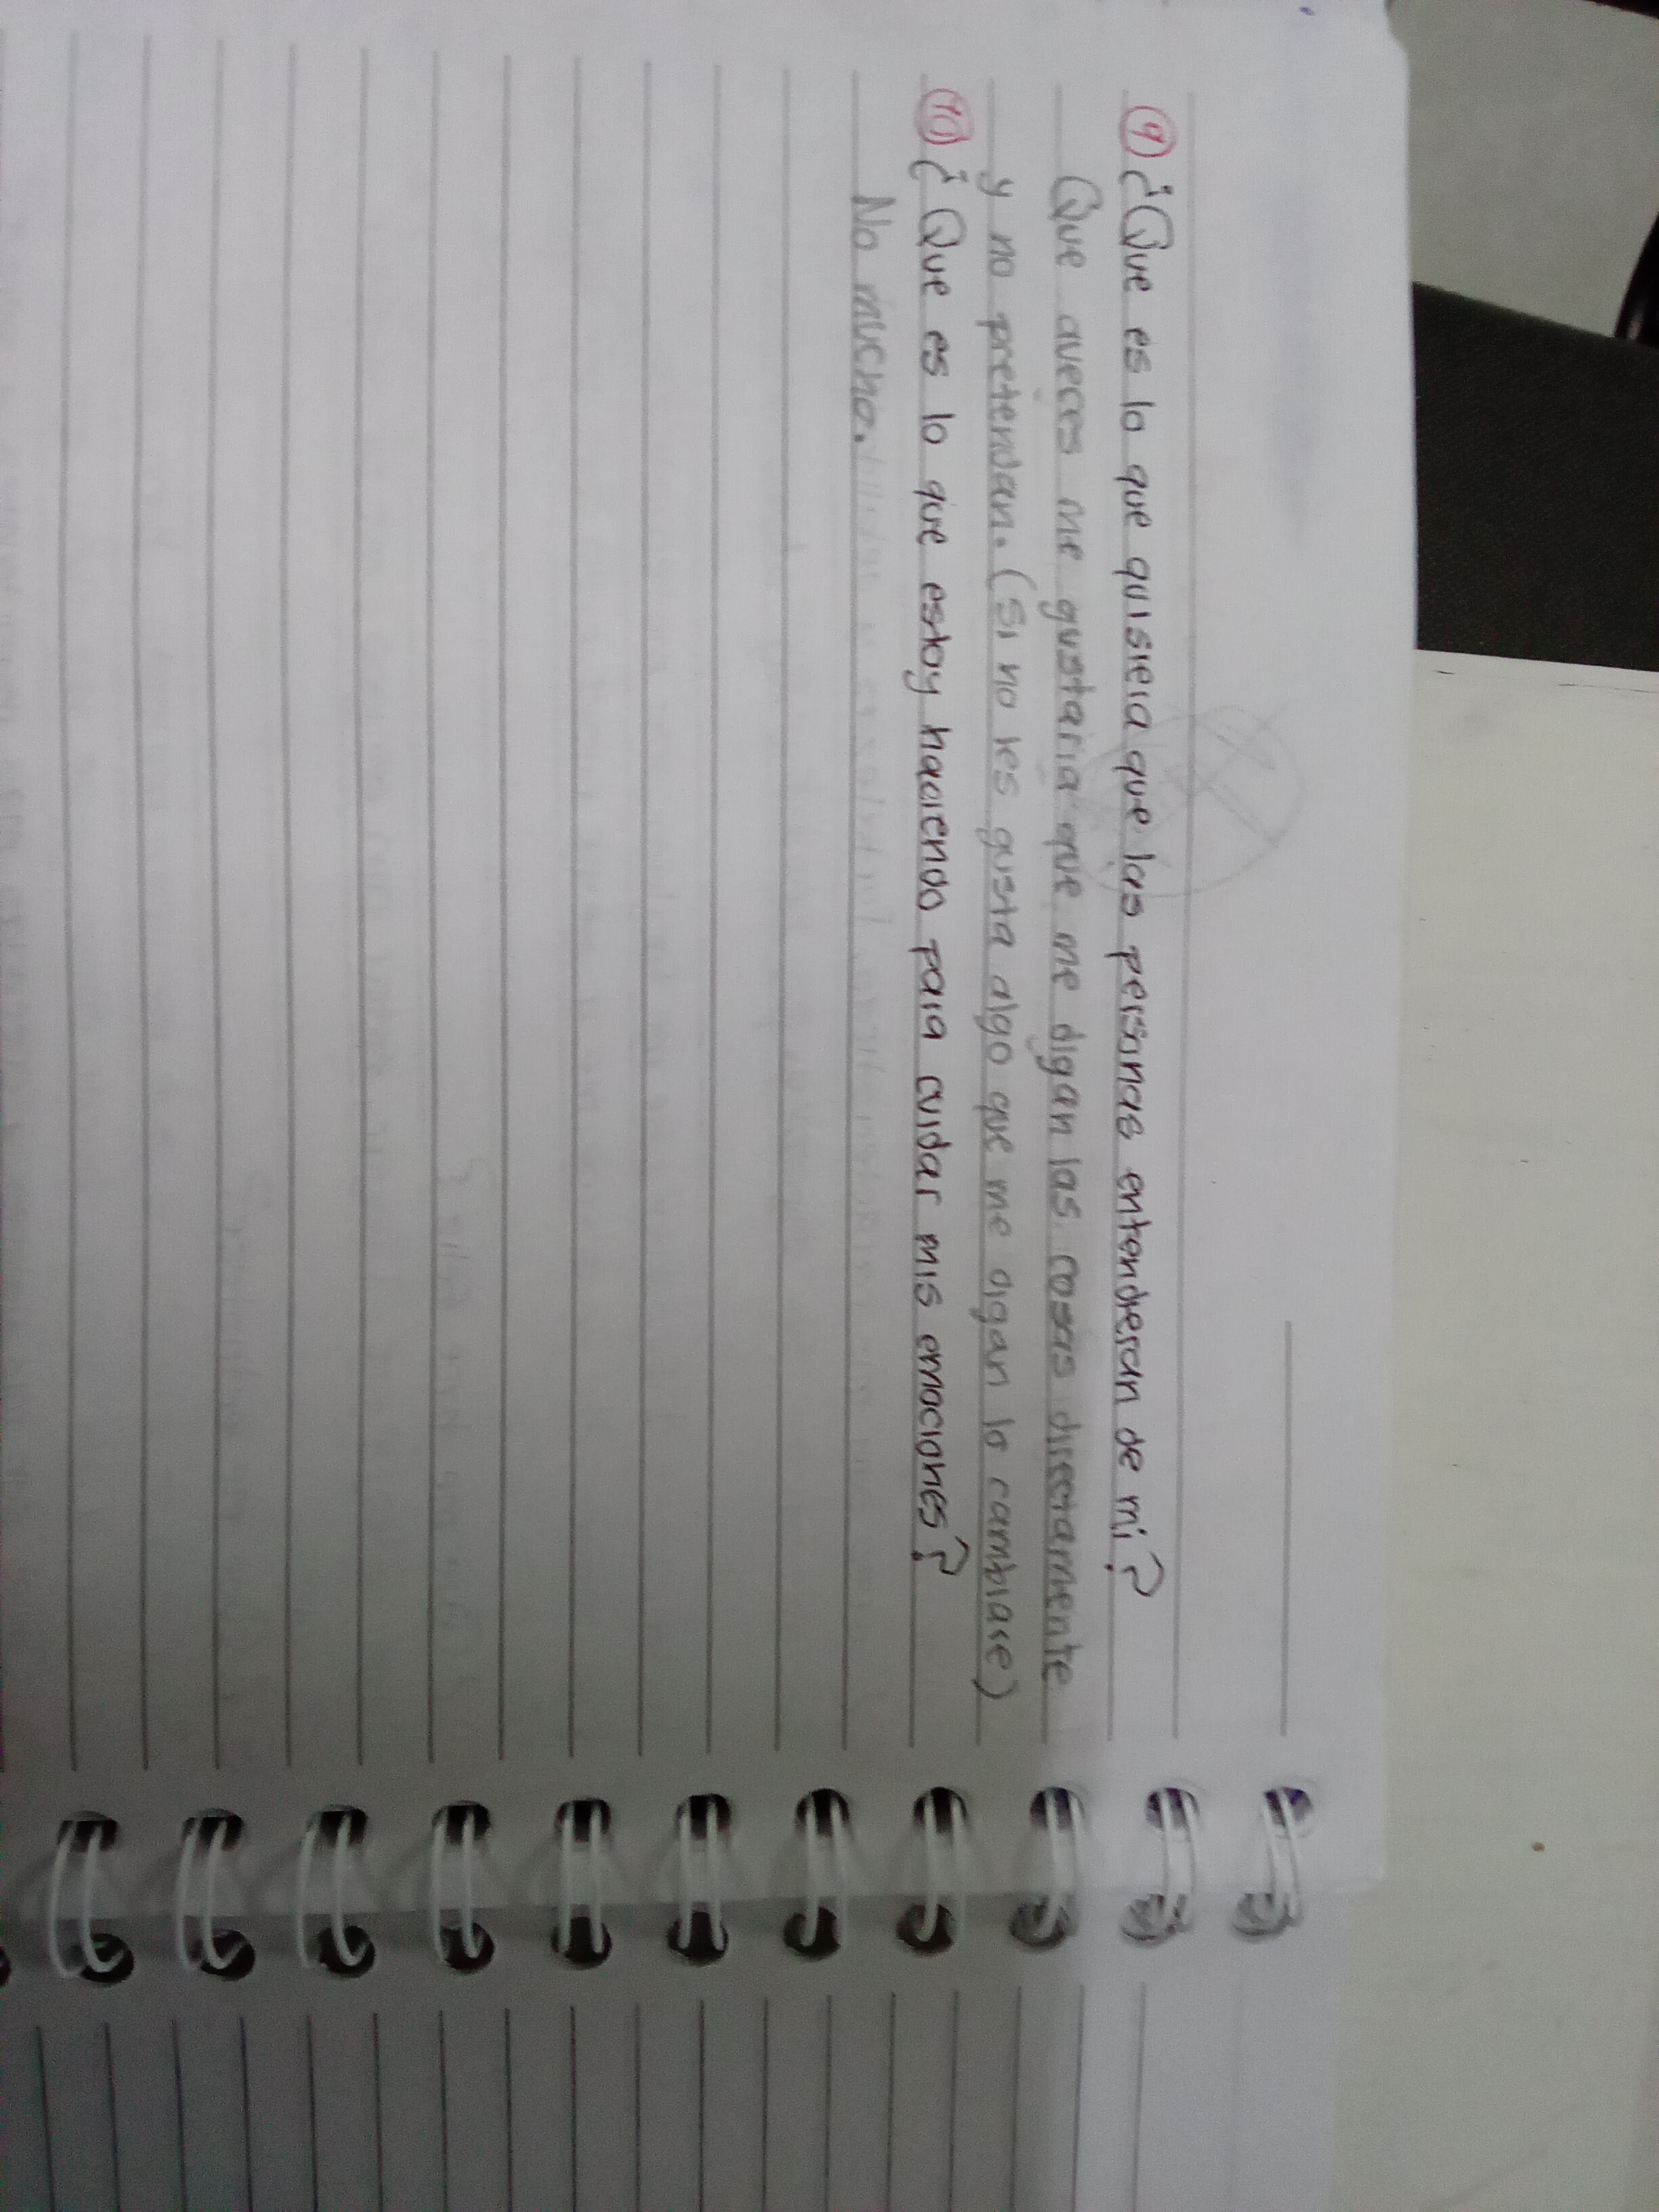 9 ¿Que es lo que quisiera que las personas entendieran de mi?
Que aveces me gustaria que me digan las cosas directamente
y no pretendan. (Si no les gusta algo que me digan lo cambiare)
10 ¿Que es lo que estoy haciendo para cuidar mis emociones?
No mucho.